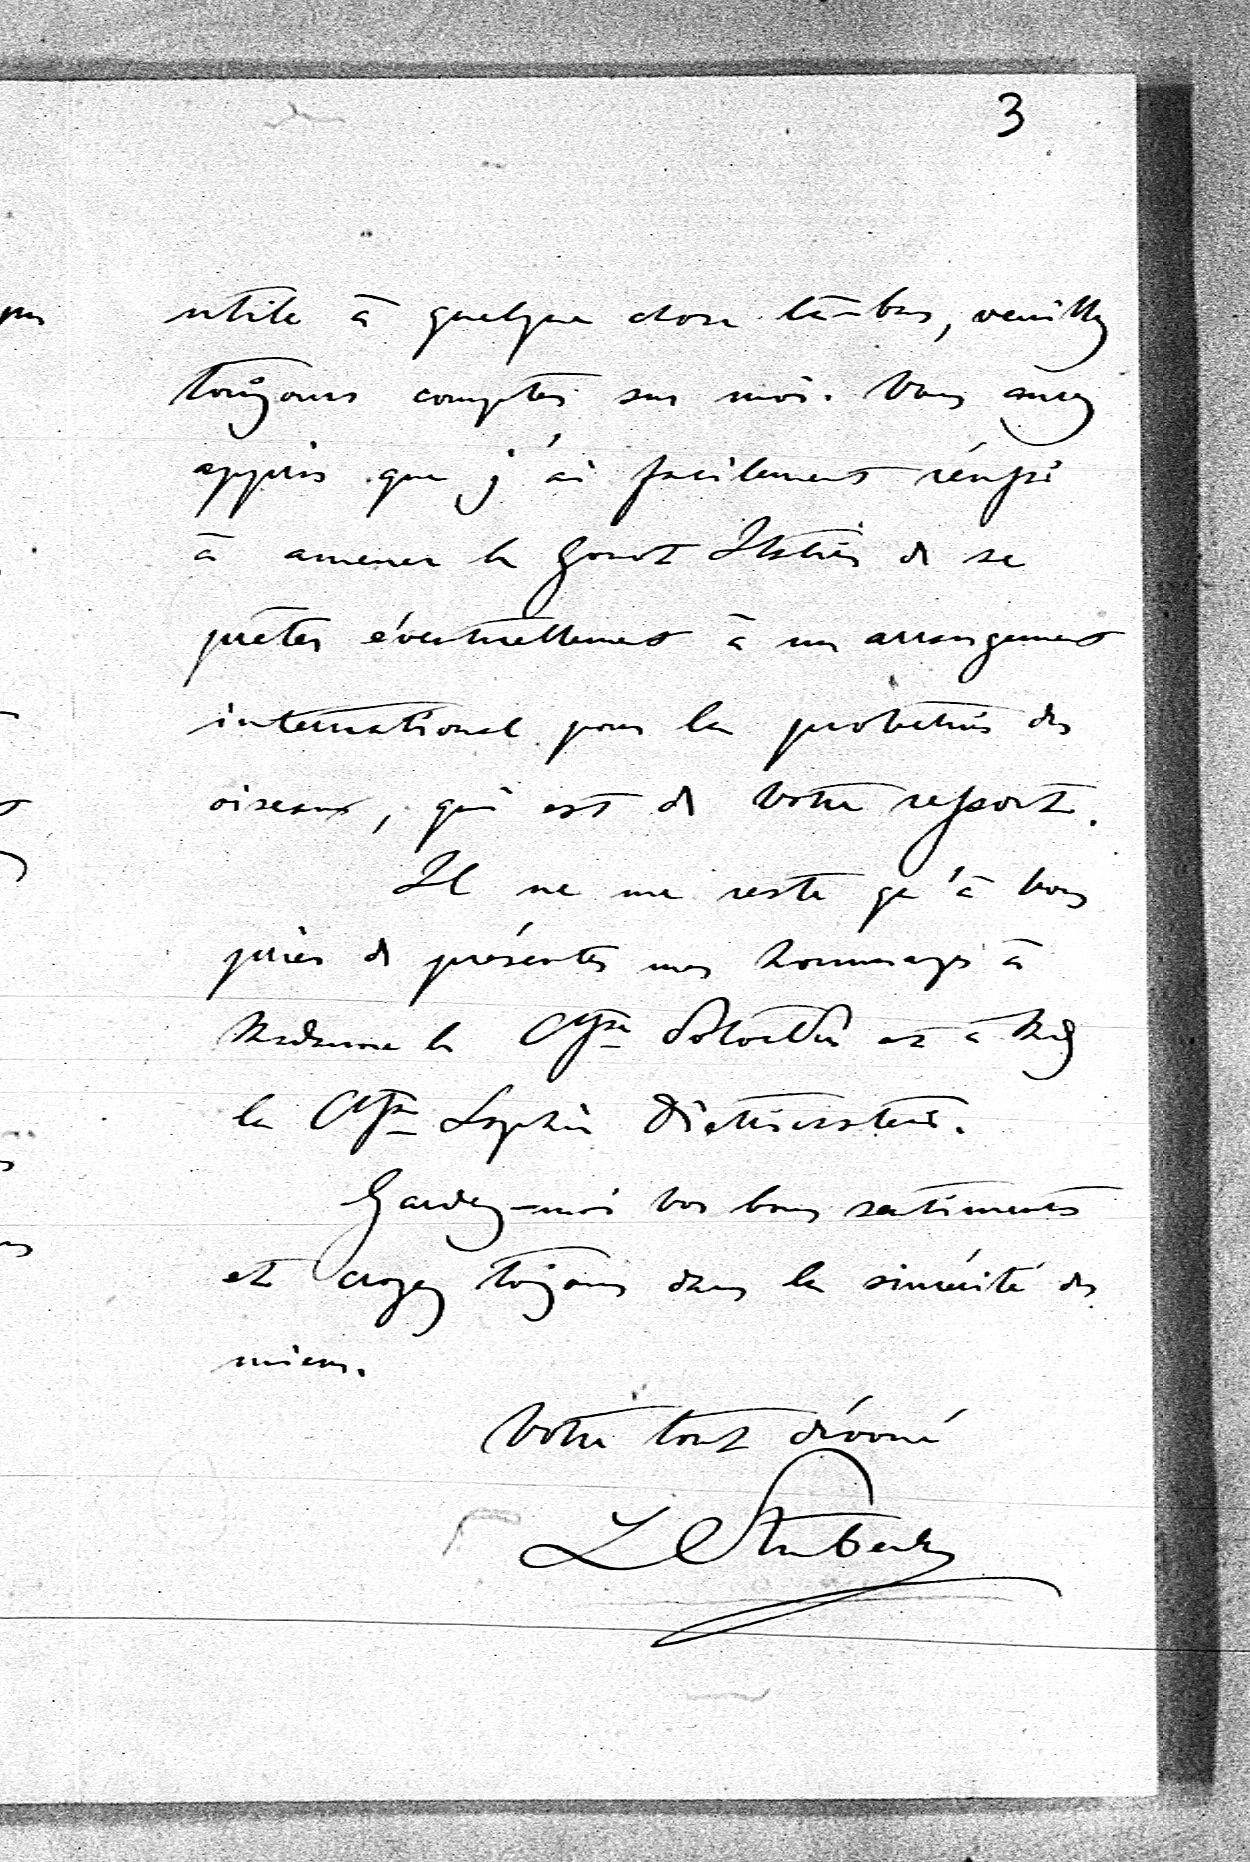 3
utile à quelque chose là-bas, veuillez
toujours compter sur moi. Vous aurez
appris que j'ai facilement réussi
à amener le Gouvt Italien de se
prêter éventuellement à un arrangement
international pour la protection des
oiseaux, qui est de votre ressort.
Il ne me reste qu'à vous
prier de présenter mes hommages à
Madame la Ctsse et à
la Ctsse Sophie Dietrichstein.
Gardez-moi vos bons sentiments
et croyez toujours dans la sincérité des
miens.
Votre tout dévoué
L